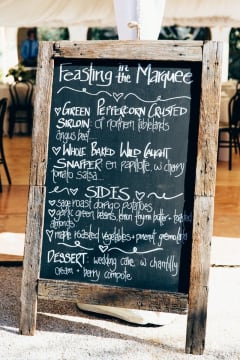 Feasting in the Marquee
Green Peppercorn Crusted
Sirloin of northern tablelands
angus beef
Whole Baked Wild Caught
Snapper en papillote, w cherry
tomato salsa
SIDES
sage roast
potatoes
garlic green beans, lemon thyme butter + toasted
almonds
maple roasted vegetables +
gremolata
DESSERT: wedding cake w chantilly
cream + berry compote